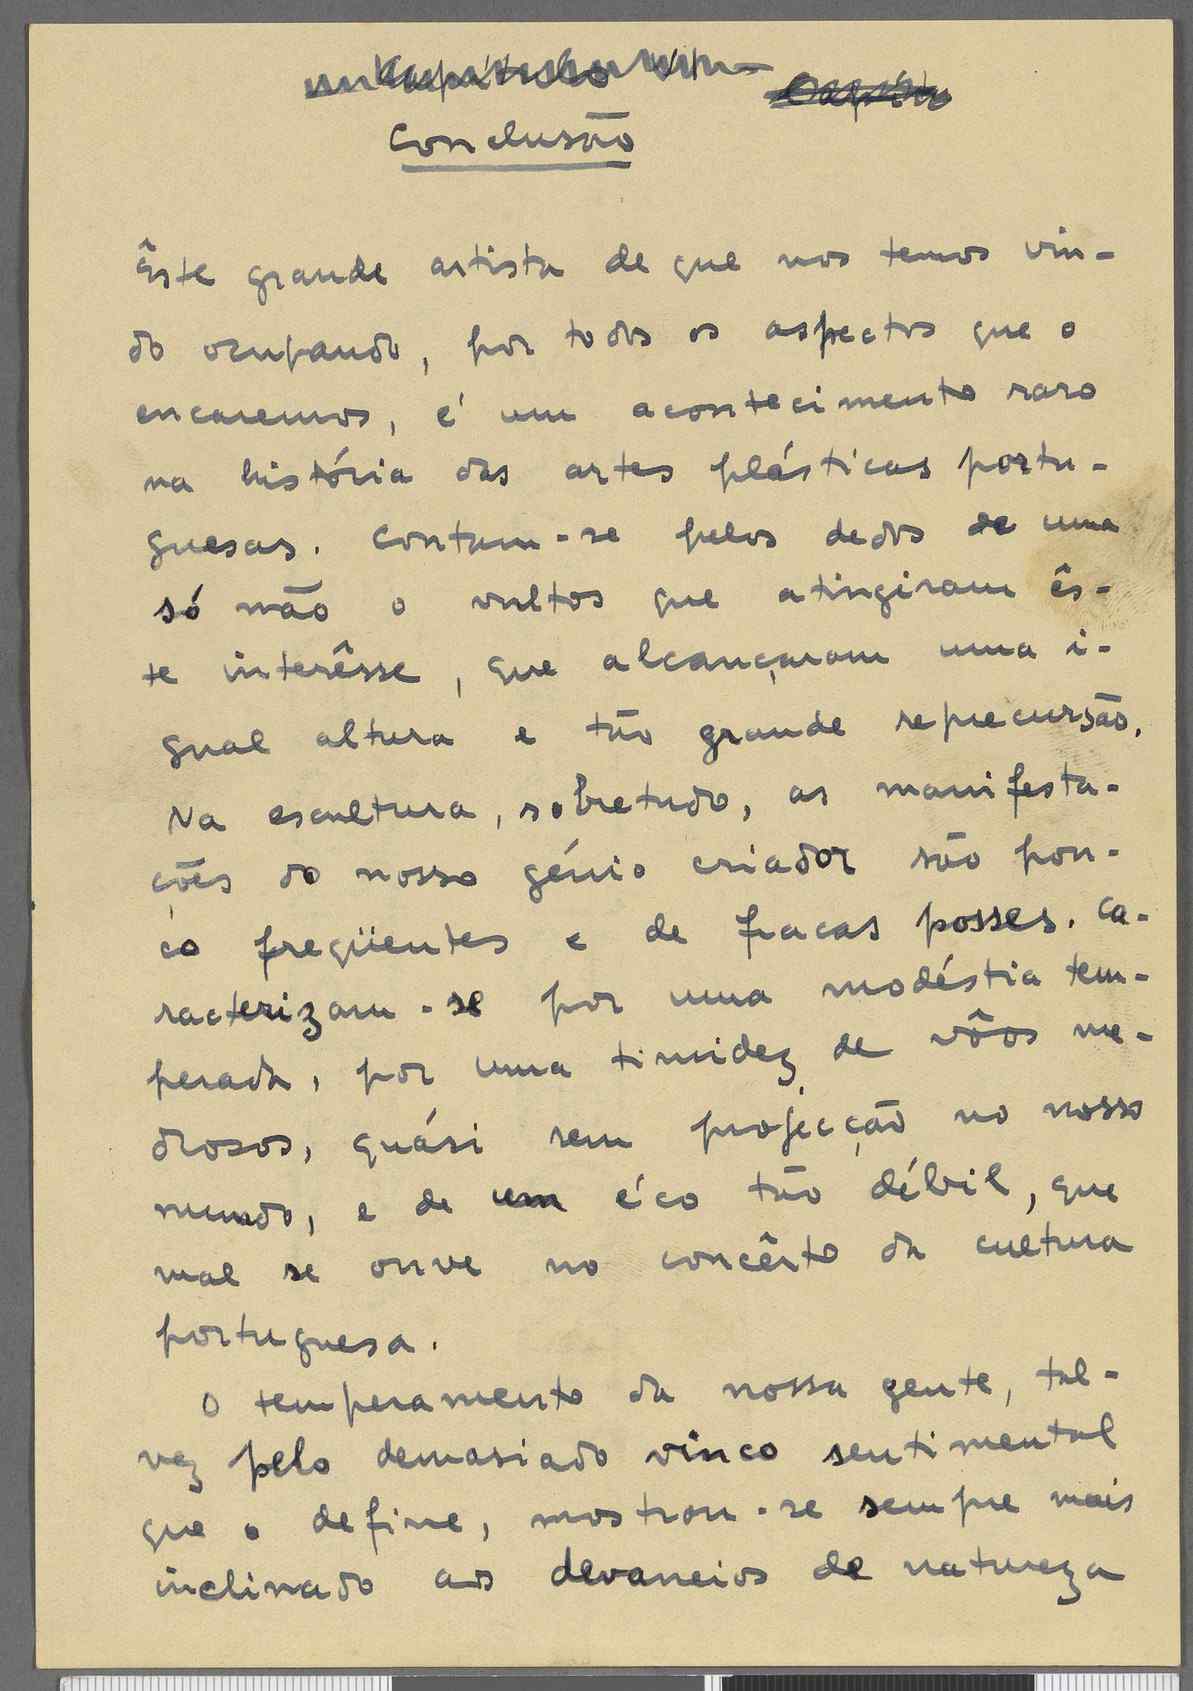 Conclusão
Êste grande artista de que nos temos vin-
do ocupando, por todos os aspectos que o
encaremos, é um acontecimento raro
na história das artes plásticas portu-
guesas. Contam-se pelos dedos de uma
só mão o vultos que atingiram ês-
te interêsse, que alcançaram uma i-
gual altura e tão grande reprecursão.
Na escultura, sobretudo, as manifesta-
ções do nosso génio criador são pou-
co freqüentes e de fracas posses. Ca-
racterizam-se por uma modéstia tem-
perada, por uma timidez de vôos me-
drosos, quási sem projecção no nosso
mundo, e de um éco tão débil, que
mal se ouve no concêrto da cultura
portuguesa.
O temperamento da nossa gente, tal-
vez pelo demasiado vinco sentimental
que o define, mostrou-se sempre mais
inclinado aos devaneios de natureza